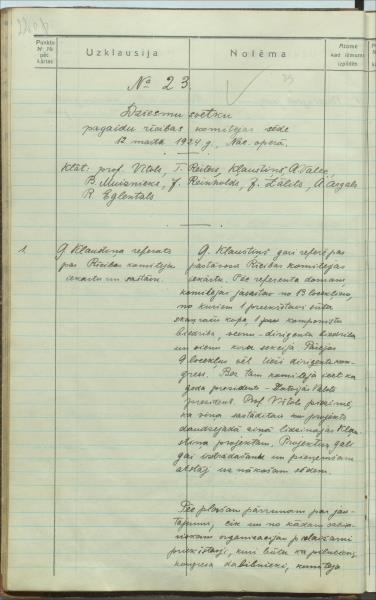 Punkts N. pēc kārtas
Uzklausija
Nolēma
Atzīme kad lēmums izpildīts
No 23.
Dziesmu svētku
pagaidu rīcības komitejas sēde
12 martā 1924 g., Nac. operā.
Klāt: prof. Vītols, T. Reiters, Klaustiņš, A. Salec,
B. Muiznieks, J. Reinholds, J. Zālīts, A. Argals
R. Eglentāls
1.
G. Klaustiņa referāts
par Rīcības komitejas
iekārtu un sastāvu.
G. Klaustiņš gari referē par
pastāvošā Rīcības komitejas
iekārtu. Pēc referenta domām,
komitejai jāsastāv no 13 locekļiem,
no kuriem 1 priekšstāvi sūta
skaņražu kopa, 1 komponistu
biedrība, vienu - dirigentu biedrība
un vienu kora sekcija. Pārējos
9 locekļus vēl dirigentu kon-
gress. Bez tam komitejā ieiet kā
goda presidents - Latvijas Valsts
president. Prof. Vītols piezīmē,
ka viņa sastādītais projekts
daudzējādā ziņā līdzinājas Klau-
stiņa projektam. Projektus
un pieņemšanu
atstāj uz nākošām sēdēm.
Pēc plašām pārrunām par jau-
tājumu, cik un no kādām
organizācijām pielaižami
priekšstāvji, kuri būtu kā pilntiesīgi
kongresa dalībnieki, komiteja